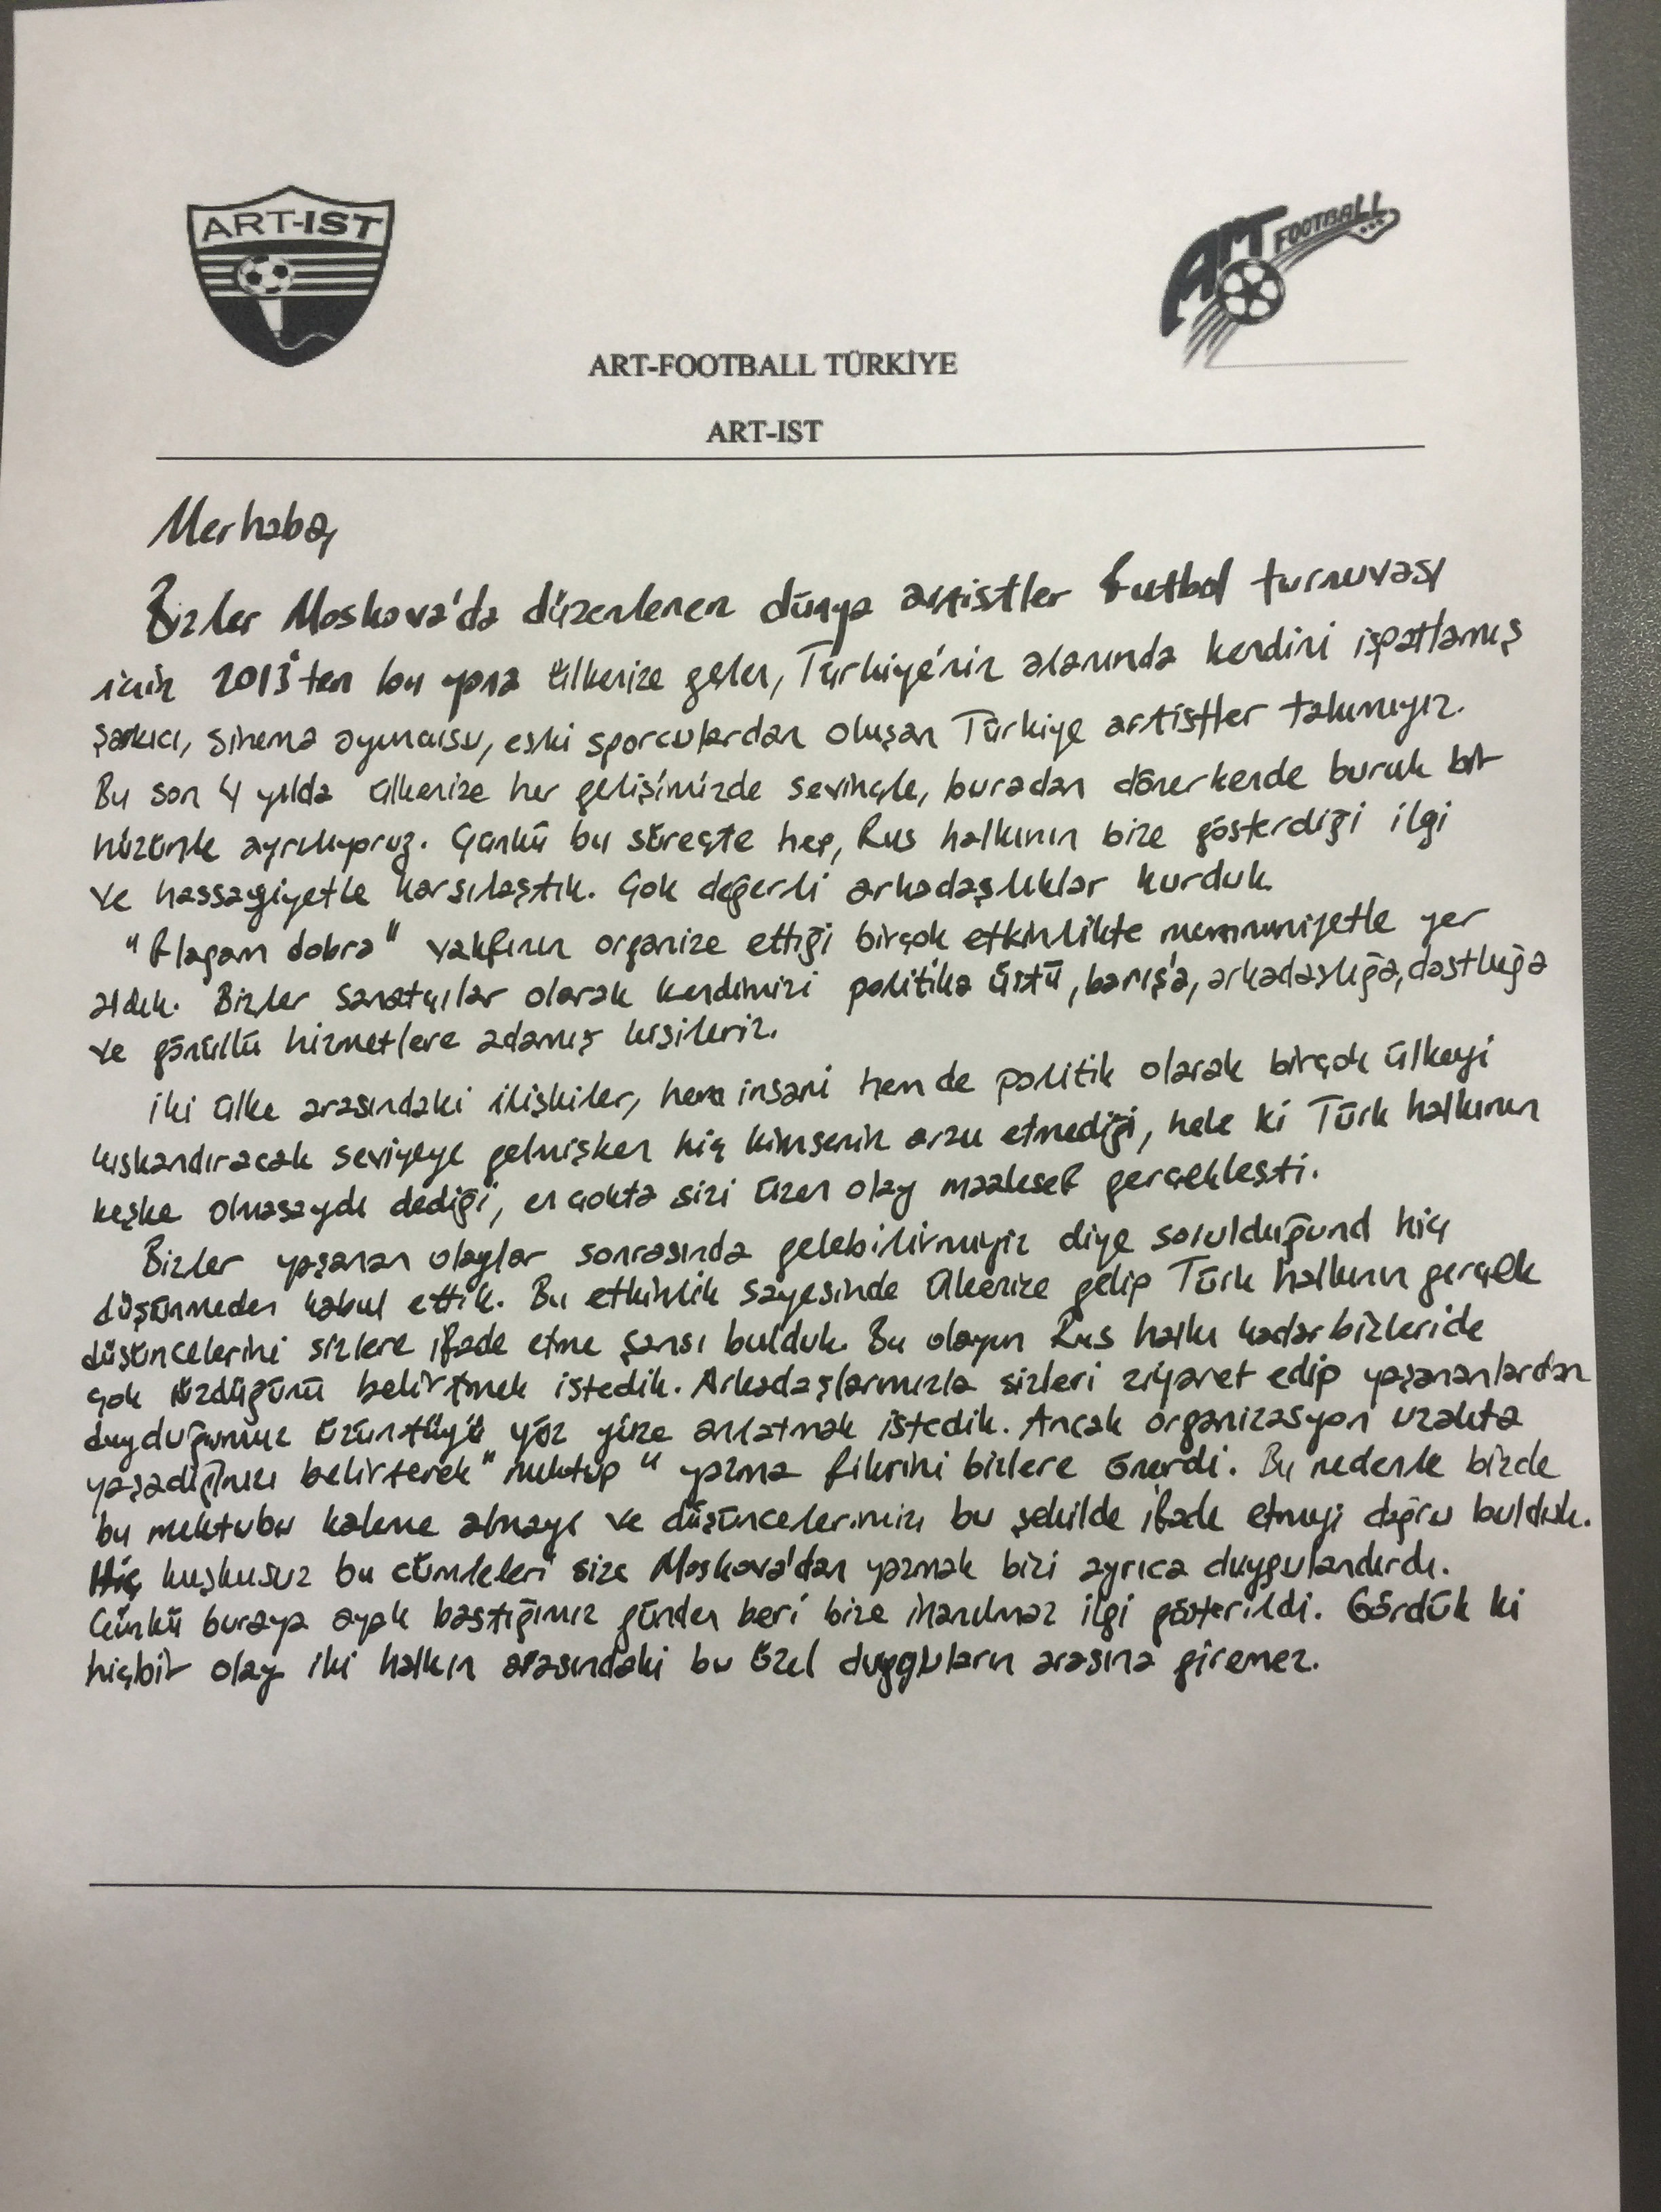 ART-IST
ART FOOTBALL
ART-FOOTBALL TÜRKİYE
ART-IST
Merhaba,
Bizler Moskova'da düzenlenen dünya artistler futbol turnuvası
için 2013'ten bu yana ülkenize gelen, Türkiye'nin alanında kendini ispatlamış
şarkıcı, sinema oyuncusu, eski sporculardan oluşan Türkiye artistler takımıyız.
Bu son 4 yılda ülkenize her gelişimizde sevinçle, buradan dönerkende buruk bir
hüzünle ayrılıyoruz. Çünkü bu süreçte hep, Rus halkının bize gösterdiği ilgi
ve hassasiyetle karşılaştık. Çok değerli arkadaşlıklar kurduk.
"Flagam dobra" vakfının organize ettiği birçok etkinlikte memnuniyetle yer
aldık. Bizler sanatçılar olarak kendimizi politika üstü, barış'a, arkadaşlığa, dostluğa
ve gönüllü hizmetlere adamış kişileriz.
İki ülke arasındaki ilişkiler, hem insani hem de politik olarak birçok ülkeyi
kıskandıracak seviyeye gelmişken hiç kimsenin arzu etmediği, hele ki Türk halkının
keşke olmasaydı dediği, en çokta sizi üzen olay maalesef gerçekleşti.
Bizler yaşanan olaylar sonrasında gelebilirmiyiz diye sorulduğund hiç
düşünmeden kabul ettik. Bu etkinlik sayesinde ülkenize gelip Türk halkının gerçek
düşüncelerini sizlere ifade etme şansı bulduk. Bu olayın Rus halkı kadar bizleride
çok üzdüğünü belirtmek istedik. Arkadaşlarımızla sizleri ziyaret edip yaşananlardan
duyduğumuz üzüntüyü yüz yüze anlatmak istedik. Ancak organizasyon uzakta
yaşadığınızı belirterek "mektup" yazma fikrini bizlere önerdi. Bu nedenle bizde
bu mektubu kaleme almayı ve düşüncelerimizi bu şekilde ifade etmeyi doğru bulduk.
Hiç kuşkusuz bu cümleleri size Moskova'dan yazmak bizi ayrıca duygulandırdı.
Çünkü buraya ayak bastığımız günden beri bize inanılmaz ilgi gösterildi. Gördük ki
hiçbir olay iki halkın arasındaki bu özel duyguların arasına giremez.